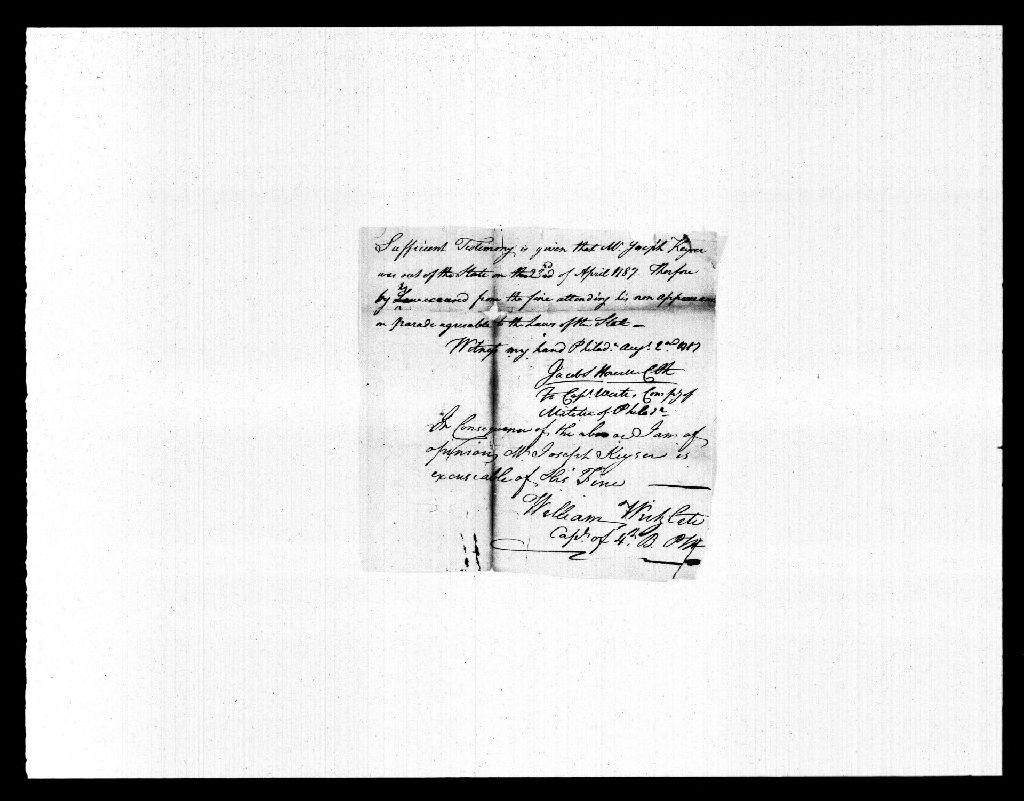 Sufficient Testimony is given that Mr. Joseph Keyser
was out of the State on the 23rd of April 1787 Therfore
by Law excused from the fine attending his non appearance
on Parade agreeable to the Laws of the State —
Witness my hand Philada. Augt. 2nd 1787
Jacob Howell Clk
To Capt. Compy of
Militia of Philada
In Consequence of the above I am of
opinion, Mr Joseph Keyser is
excuseable of His Fine
William
Capt. of 4th. B. P M